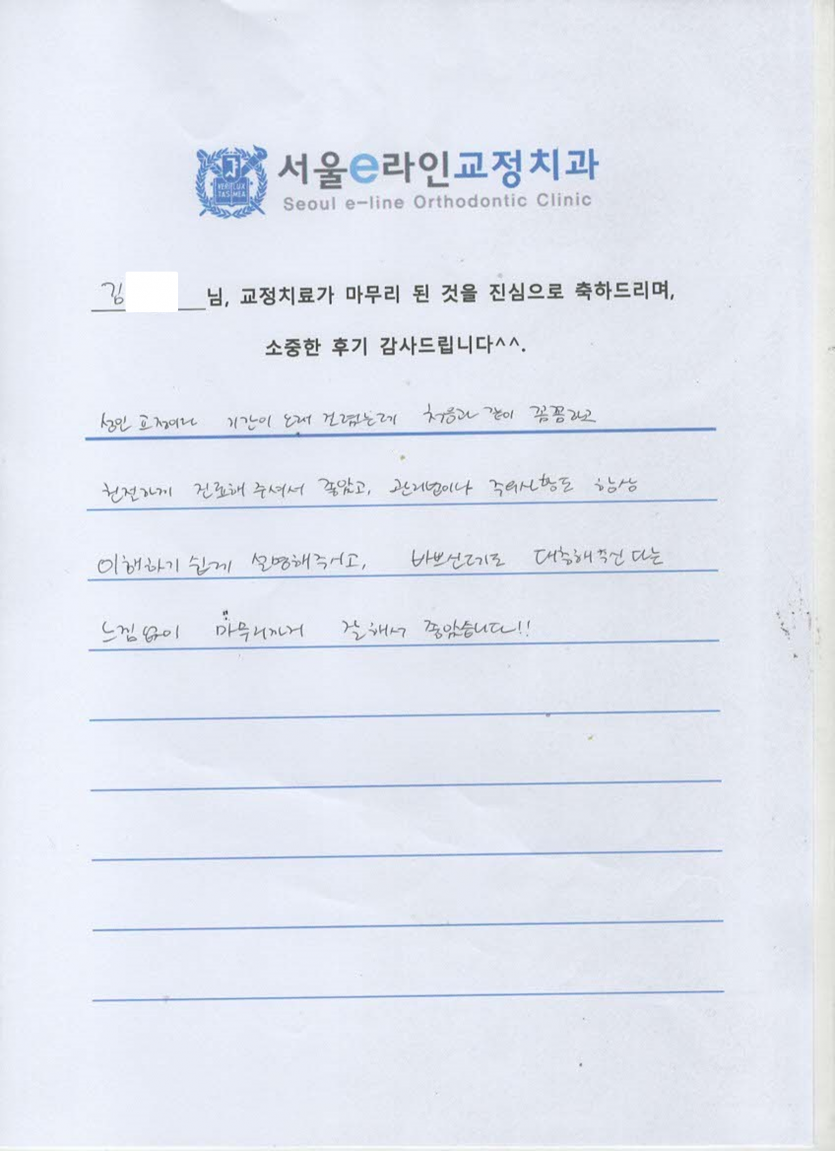 VERI LUX TAS MEA
서울e라인교정치과
Seoul e-line Orthodontic Clinic
김 님, 교정치료가 마무리 된 것을 진심으로 축하드리며,
소중한 후기 감사드립니다^^.
성인 교정이라 기간이 오래 걸렸는데 처음과 같이 꼼꼼하고
친절하게 진료해 주셔서 좋았고, 관리법이나 주의사항도 항상
이해하기 쉽게 설명해주시고, 바쁘신데도 대충해주신다는
느낌 없이 마무리까지 잘해서 좋았습니다!!